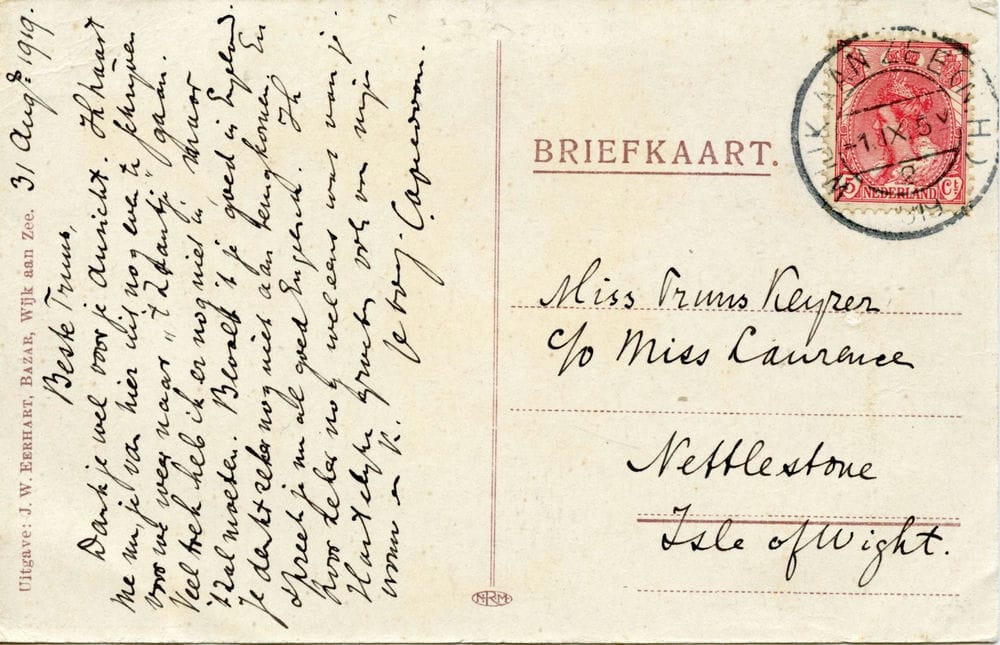 31 Augs. 1919.
Beste Truus,
Dank je wel voor je ansicht. Ik haast
me nu je van hier uit nog even te schrijven
voor we weg naar "'t Zaantje" gaan.
Veel trek heb ik er nog niet in maar
't zal moeten. Bevalt 't je goed in Engeland.
Je denkt zeker nog niet aan terugkomen. En
spreek je nu al goed Engelsch. Ik
hoor zeker nog wel eens wat van je
Hartelijke groeten ook van mijn
en K.
je toeg.
Uitgave: J. W. EERHART, BAZAR, Wijk aan Zee.
BRIEFKAART.
WIJK AAN ZEE
-1.IX. 5
5 NEDERLAND Ct
Miss Truus Keyzer
c/o Miss Laurence
Nettlestone
Isle of Wight.
N.R.M.